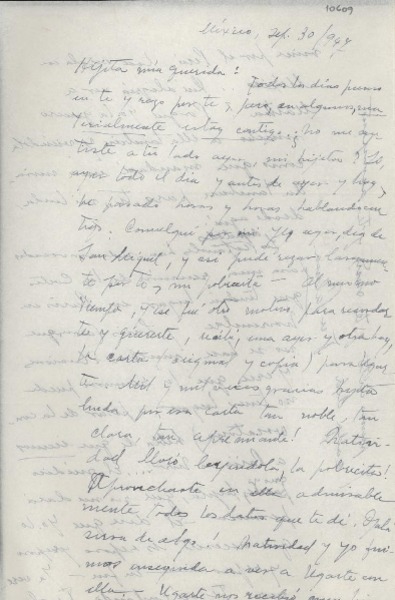 10609
México, sep. 30/947
Hijita mía querida: Todos los días pienso
en ti y rezo por ti, pero, en algunos, ma
terialmente estoy contigo; ¿no me sen
tiste a tu lado ayer, mi hijita? Sí,
ayer todo el día y antes de ayer y hoy,
he pasado horas y horas hablando
Comulgué por mí y ayer, día de
San Miguel, y así pude rogar
te por ti y mi pobrecita — Al mismo
tiempo, y ese fue otro motivo para recordar
te y quererte, recibí, una ayer y otra hoy,
la carta original y copia, para Ugar
te. Mil y mil veces gracias hijita
linda por esa carta tan noble, tan
clara, tan apremiante! Nativi
dad lloró leyéndola, la pobrecita!
Aprovechaste en ella admirable
mente todos los datos que te di. Ojalá
sirva de algo! Natividad y yo fui
mos enseguida a ver a Ugarte con
ella — Ugarte nos recibió muy